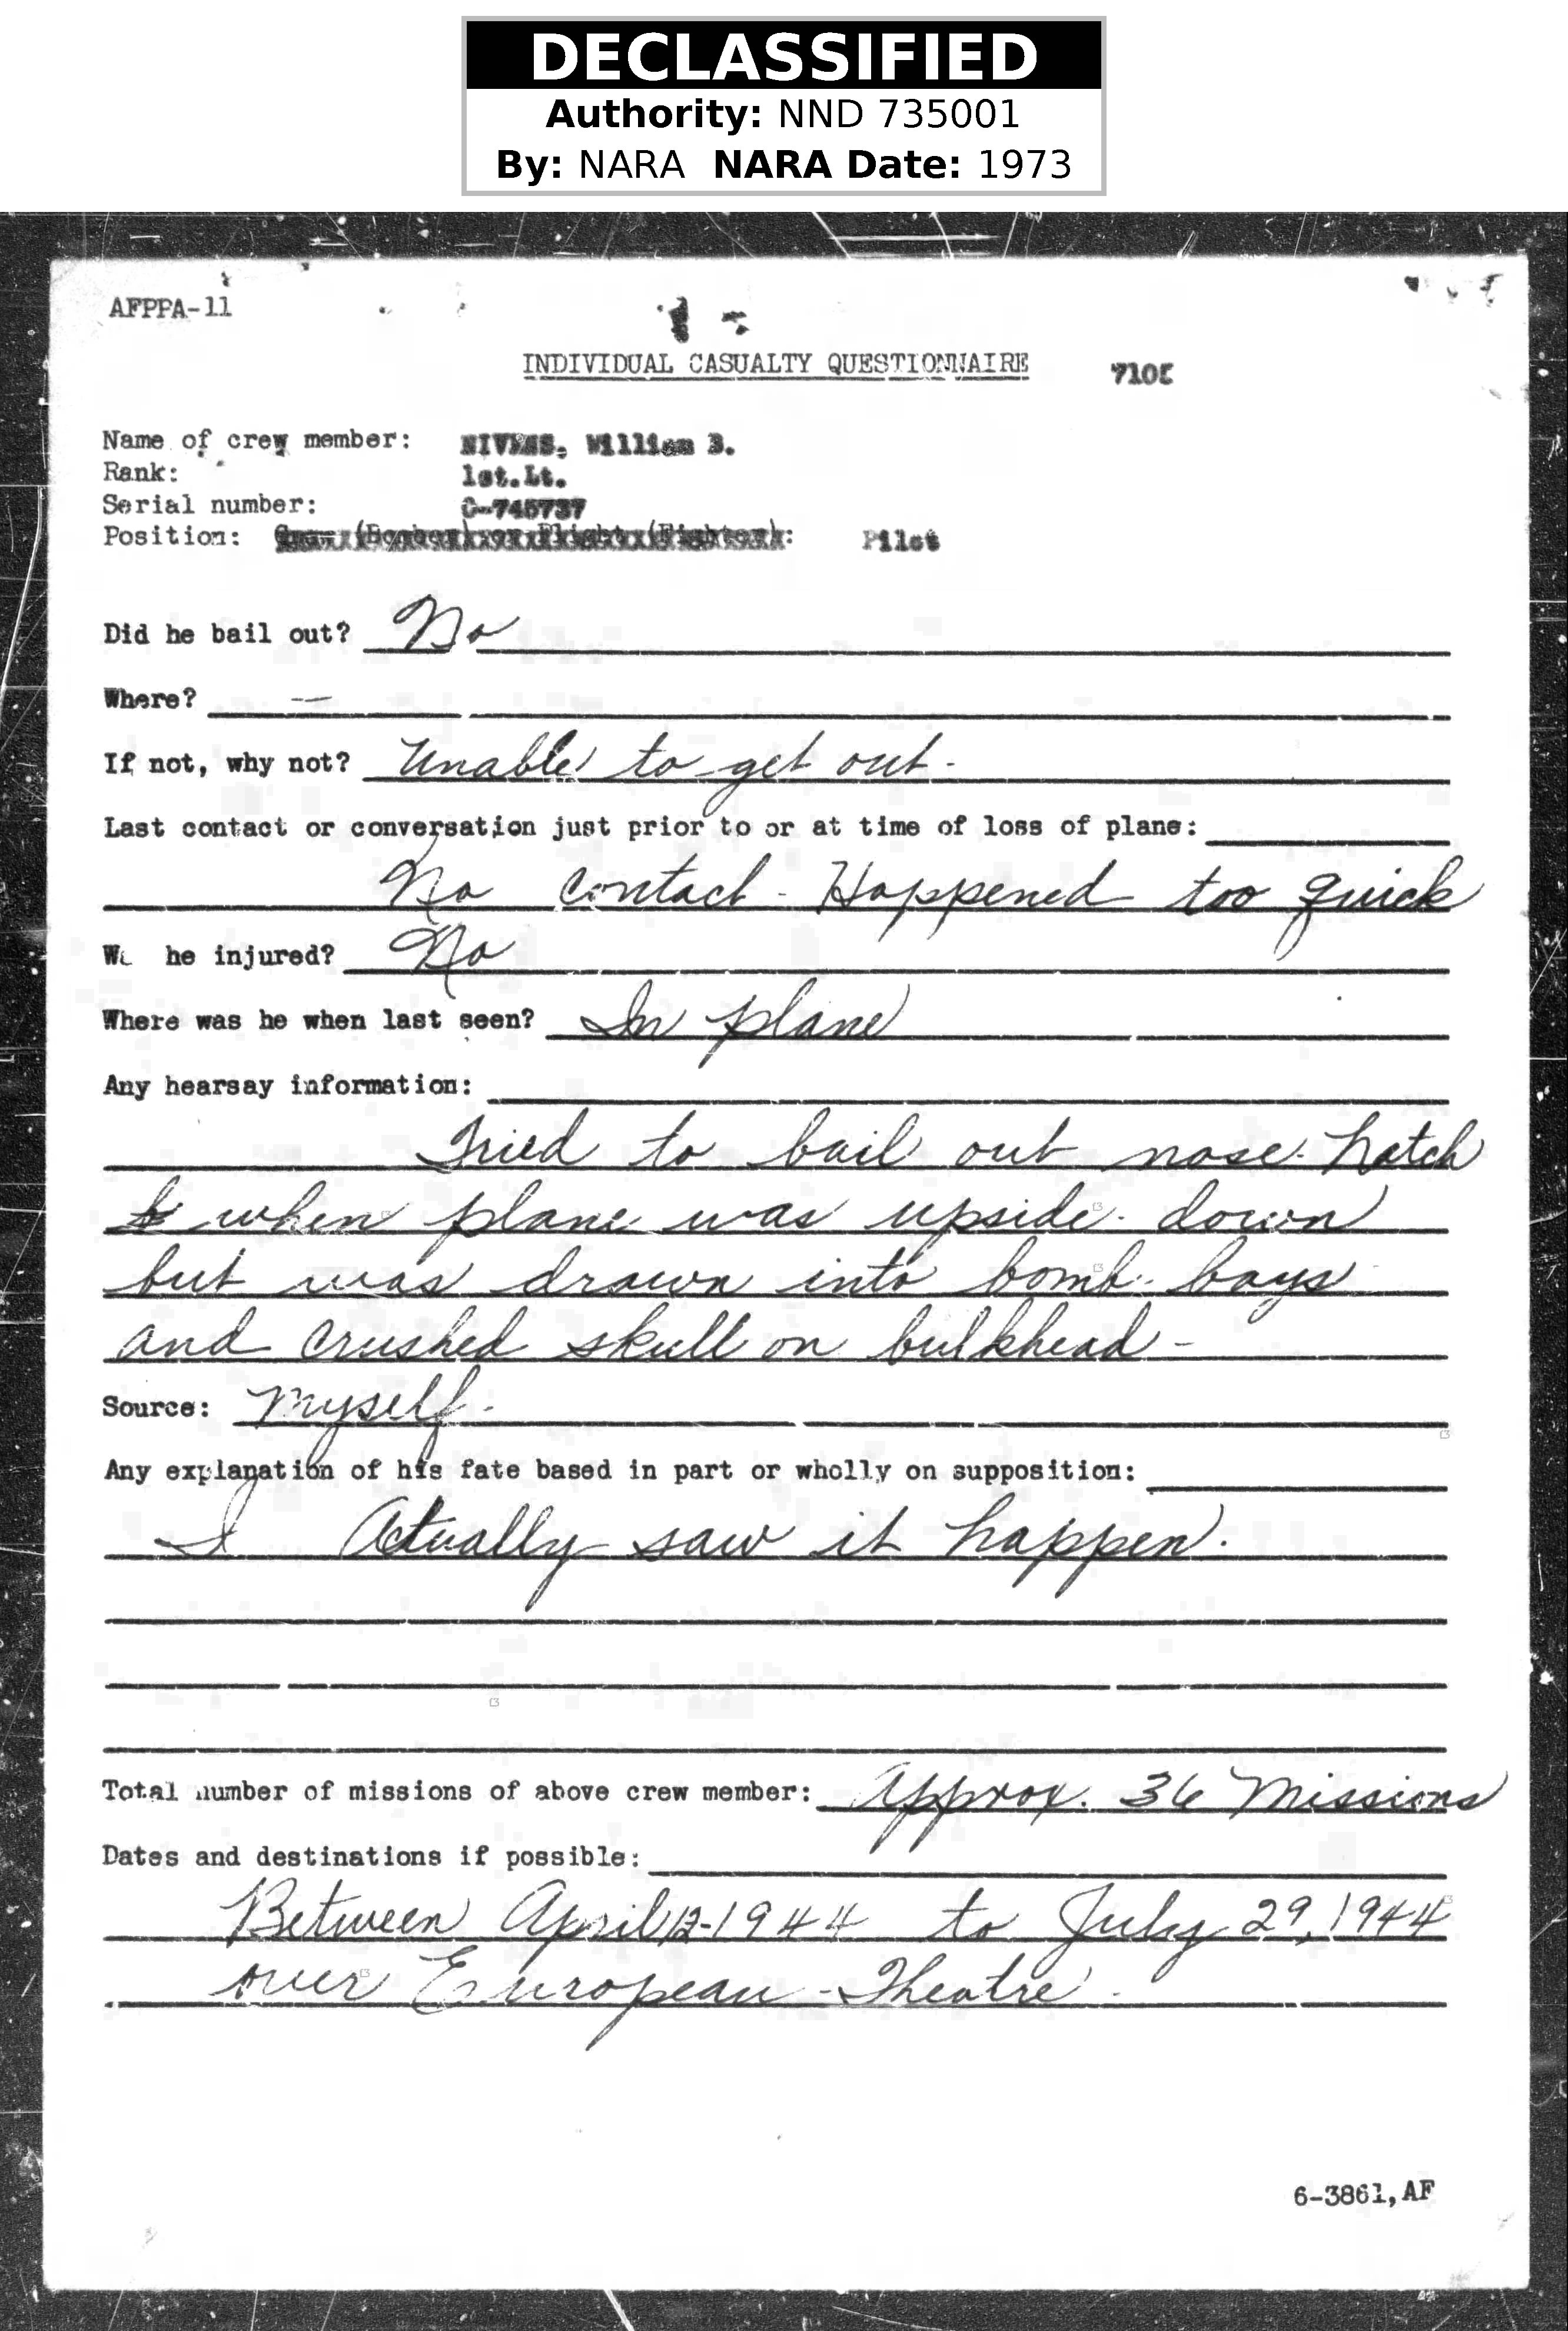 DECLASSIFIED
Authority: NND 735001
By: NARA NARA Date: 1973
AFPPA-11
INDIVIDUAL CASUALTY QUESTIONNAIRE 7105
Name of crew member: NIVENS, William B.
Rank: 1st.Lt.
Serial number: O-745737
Position: Crew (Bomber) or Flight (Fighter): Pilot
Did he bail out? No
Where? —
If not, why not? Unable to get out -
Last contact or conversation just prior to or at time of loss of plane:
No contact - Happened too quick
he injured? No
Where was he when last seen? In plane
Any hearsay information:
Tried to bail out nose-hatch
when plane was upside-down
but was drawn into bomb-bays
and crushed skull on bulkhead -
Source: Myself.
Any explanation of his fate based in part or wholly on supposition:
I Actually saw it happen.
Total number of missions of above crew member: Approx. 36 Missions
Dates and destinations if possible:
Between April 12-1944 to July 29, 1944
over European-Theatre.
6-3861, AF